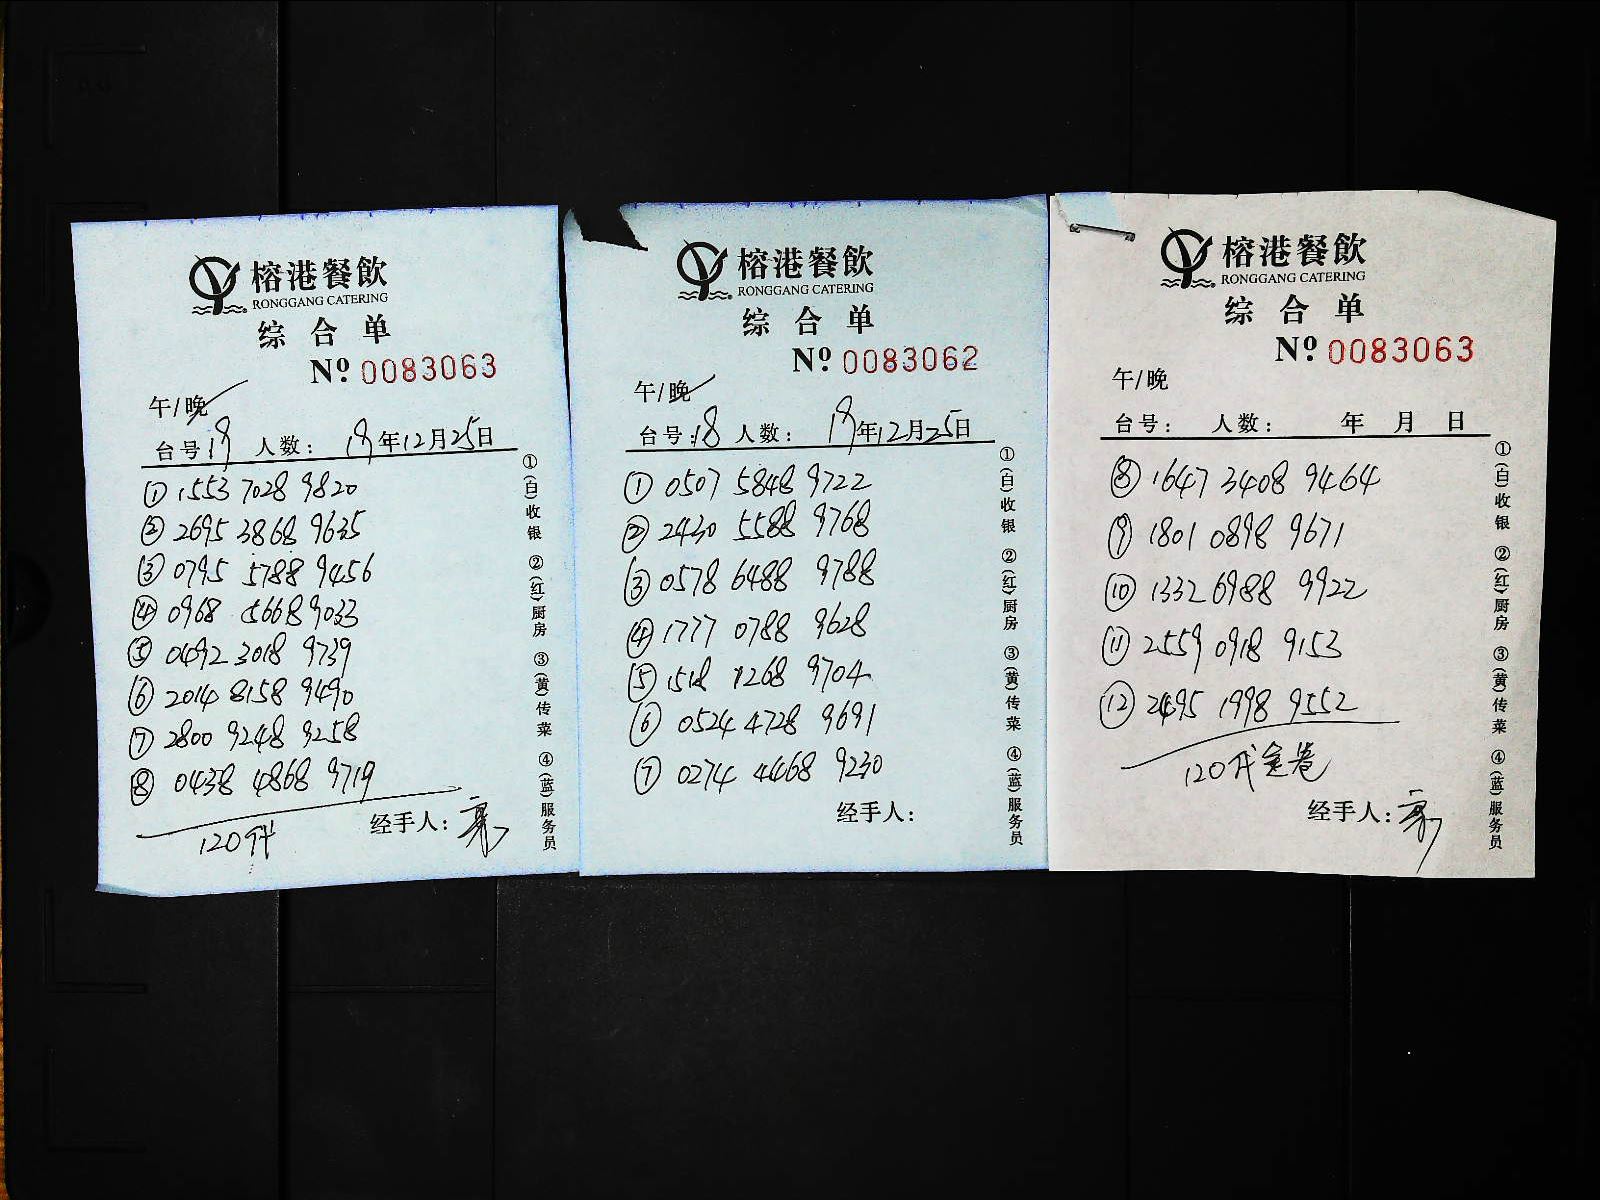 榕港餐飲
RONGGANG CATERING
综合单
Nº 0083063
午/晚
台号:19 人数: 19年12月25日
① 1553 7028 9820
② 2695 3868 9635
③ 0795 5788 9456
④ 0968 5668 9033
⑤ 0492 3018 9739
⑥ 2014 8158 9490
⑦ 2800 9248 9258
⑧ 0438 4868 9719
经手人:
①(白)收银 ②(红)厨房 ③(黄)传菜 ④(蓝)服务员
榕港餐飲
RONGGANG CATERING
综合单
Nº 0083062
午/晚
台号:18 人数: 19年12月25日
① 0507 5848 9722
② 2430 5588 9768
③ 0578 6488 9788
④ 1777 0788 9628
⑤ 1518 1268 9704
⑥ 0524 4728 9691
⑦ 0274 4468 9230
经手人:
①(白)收银 ②(红)厨房 ③(黄)传菜 ④(蓝)服务员
榕港餐飲
RONGGANG CATERING
综合单
Nº 0083063
午/晚
台号: 人数: 年 月 日
⑧ 1647 3408 9464
⑨ 1801 0898 9671
⑩ 1332 6988 9922
⑪ 2559 0918 9153
⑫ 2495 1998 9552
经手人:
①(白)收银 ②(红)厨房 ③(黄)传菜 ④(蓝)服务员